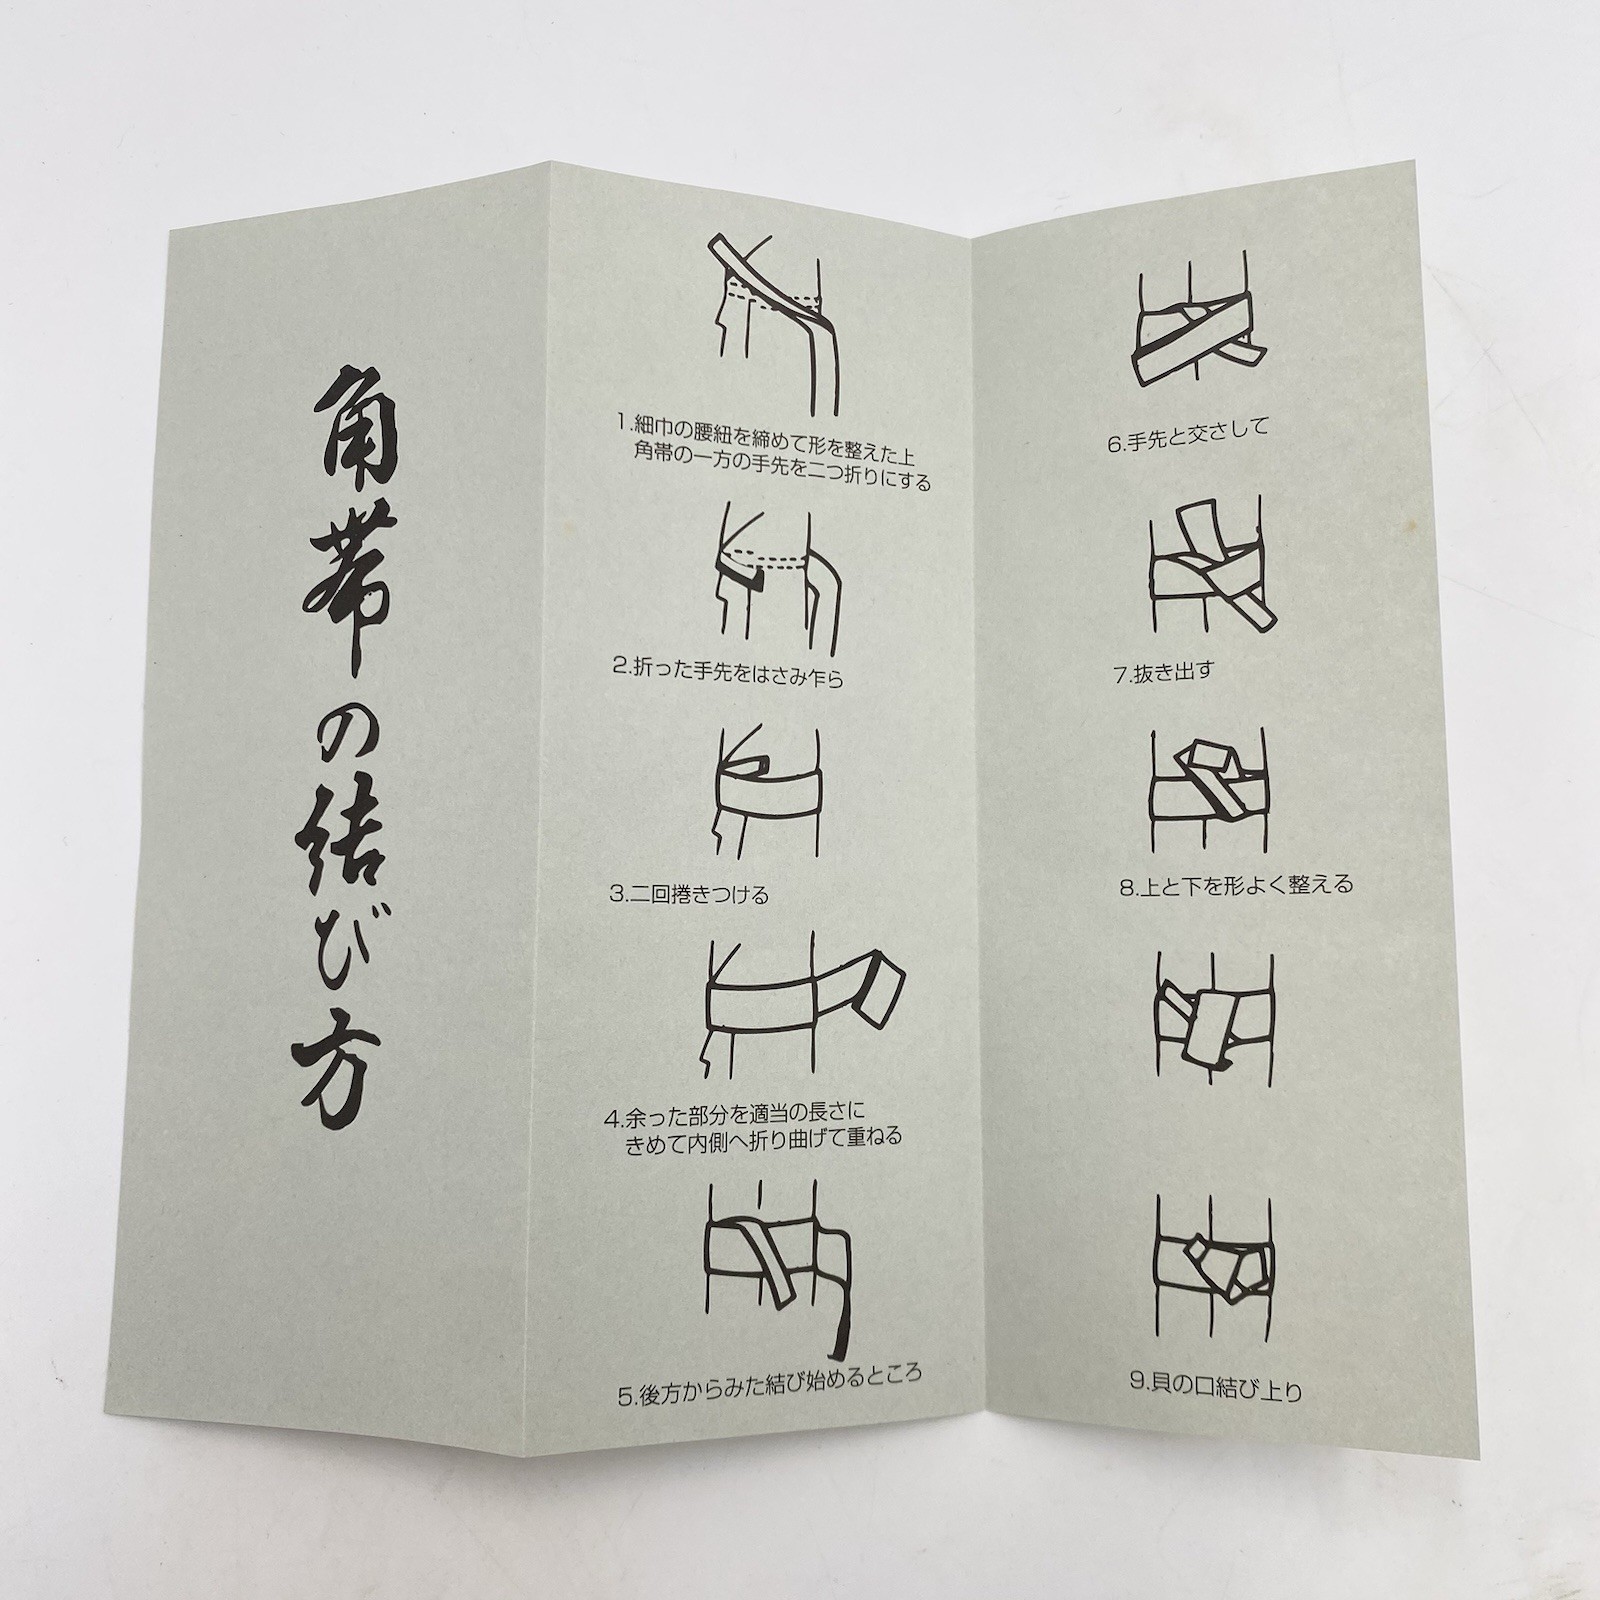 角帯の結び方
1.細巾の腰紐を締めて形を整えた上
角帯の一方の手先を二つ折りにする
2.折った手先をはさみ乍ら
3.二回捲きつける
4.余った部分を適当の長さに
きめて内側へ折り曲げて重ねる
5.後方からみた結び始めるところ
6.手先と交さして
7.抜き出す
8.上と下を形よく整える
9.貝の口結び上り